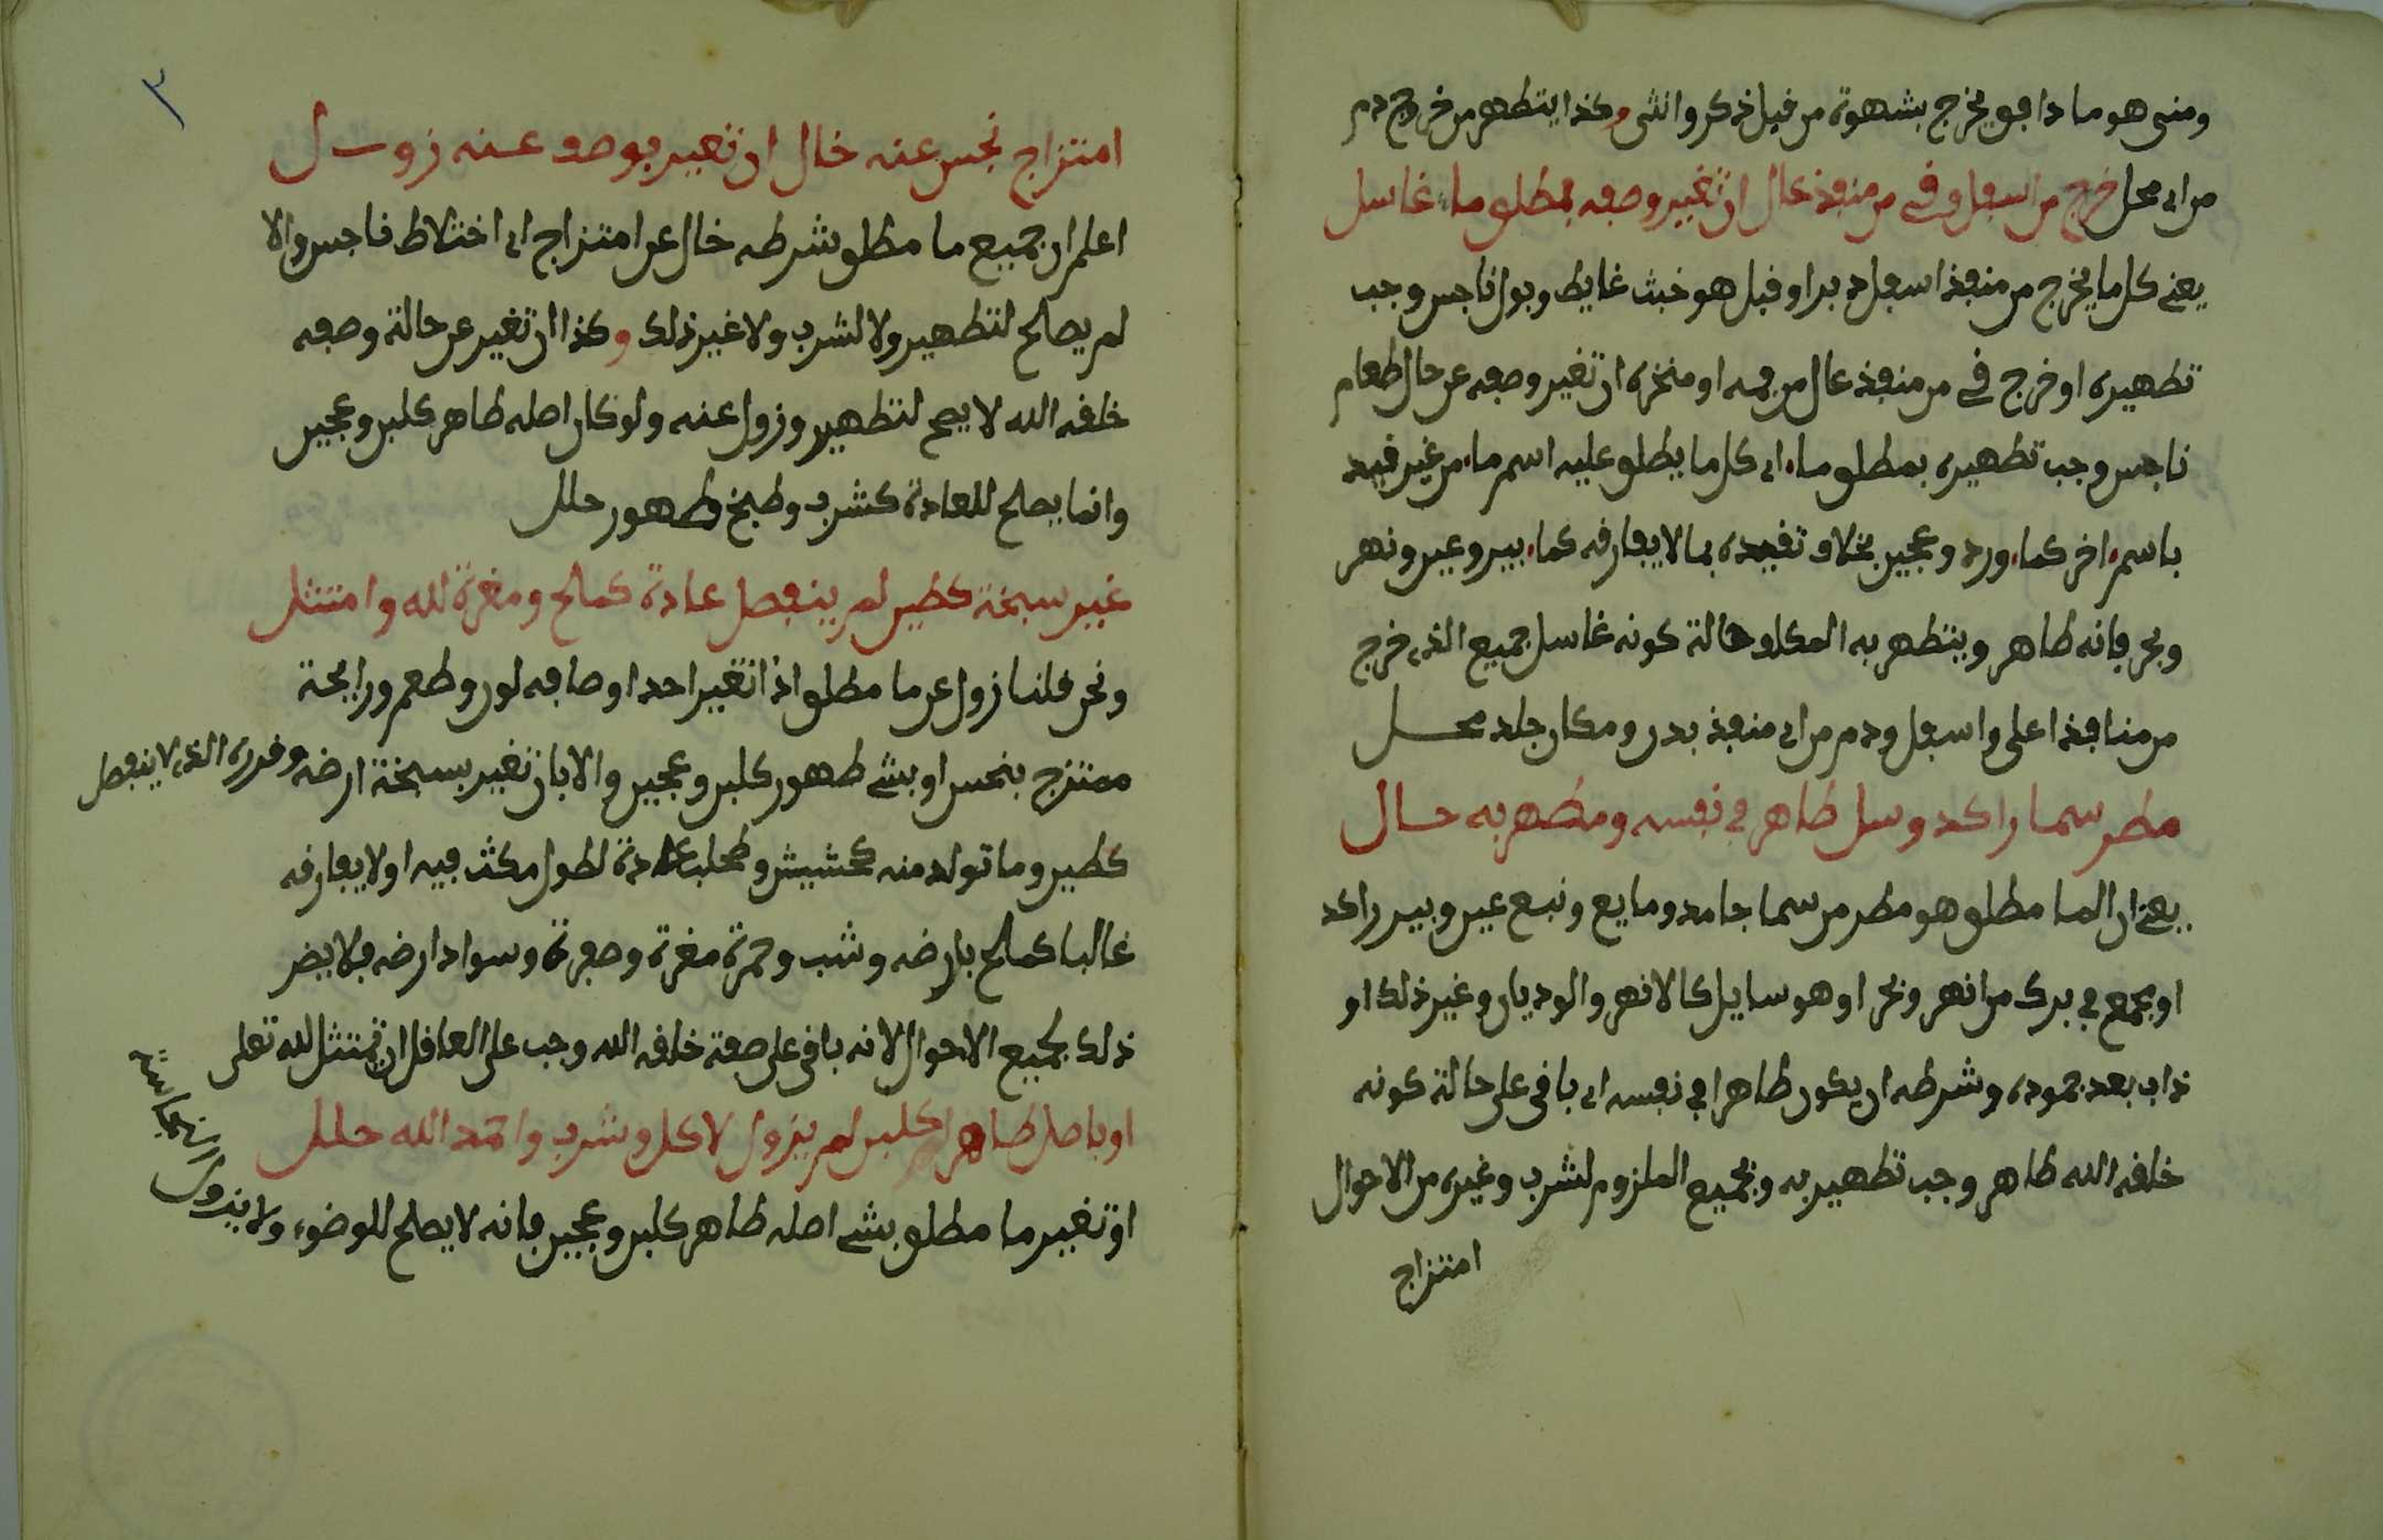 ومنى هو ما دافق يخرج بشهوة من قبل ذكر وانثى وكذا يتطهر من خروج دم
من اى محل خرج من اسفل وقي من منفذ عال ان تغير وصفه بمطلق ماء غاسل
يعني كل ما يخرج من منفذ اسفل دبر او قبل هو خبث غايط وبول ناجس وجب
تطهيره او خرج قي من منفذ عال من فمه او منخره ان تغير وصفه عن حال طعام
ناجس وجب تطهيره بمطلق ماء اى كل ما يطلق عليه اسم ماء من غير قيد
باسم اخر كماء ورد وعجين بخلاف تقييده بما لا يفارقه كماء بير وعين ونهر
وبحر فانه طاهر ويتطهر به المكلف حالة كونه غاسل جميع الذى خرج
من منافذ اعلى واسفل ودم من اى منفذ بدن ومكان جلد محل
مطر سما راكد وسل طاهر في نفسه ومطهر به حال
يعني ان الما مطلق هو مطر من سما جامد ومايع ونبع عين وبير راكد
او بجمع في برك من انهر وبحر او هو سايل كالانهر والوديان وغير ذلك او
ذاب بعد جموده وشرطه ان يكون طاهرا في نفسه اى باقى على حالة كونه
خلقه الله طاهر وجب تطهير به وبجميع الملزوم لشرب وغيره من الاحوال
امتزاج
٣
امتزاج نجس عنه خال ان تغير بوصف عنه زول
اعلم ان جميع ما مطلق بشرطه خال عن امتزاج اى اختلاط ناجس والا
لم يصالح لتطهير ولا لشرب ولا غير ذلك وكذا ان تغير عن حالة وصفه
خلقه الله لا يصح لتطهير وزول عنه ولو كان اصله طاهر كلبن وعجين
وانما يصلح للعادة كشرب وطبخ وطهور حلل
غير سبخة كطين لم ينفصل عادة كمالح ومغرة لله وامتثل
ونحن قلنا زول عن ما مطلق اذا تغير احد اوصافه لون وطعم ورايحة
ممتزج بنجس او بشي طهور كلبن وعجين والا بان تغير بسبخة ارضه وقرره الذى لا ينفصل
كطين وما تولد منه كحشيش وطحلب عادة لطول مكث فيه او لا يفارقه
غالبا كمالح بارضه وشب وحمرة مغرة وصفرة وسواد ارضه فلا يضر
ذلك بجميع الاحوال لانه باقى على صفة خلقه الله وجب على العاقل ان يمتثل لله تعلى
او باصل طاهر كلبن لم يزول لاكل وشرب واحمد الله حلل
او تغير ما مطلق بشي اصله طاهر كلبن وعجين فانه لا يصلح للوضوء ولا يزول
النجاسة